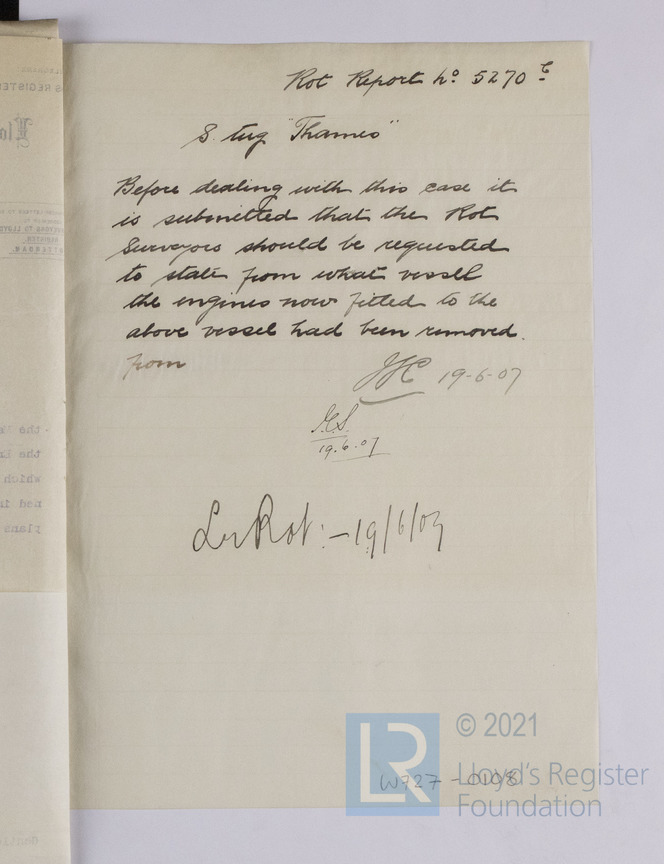 Rot Report No 5270 c
S. tug "Thames"
Before dealing with this case it
is submitted that the Rot
Surveyors should be requested
to state from what vessel
the engines now fitted to the
above vessel had been removed.
from
JJC 19-6-07
19.6.07
Lr Rot: - 19/6/07
W727-0108
LR
© 2021
Lloyd's Register
Foundation
the
the
which
ned in
plans